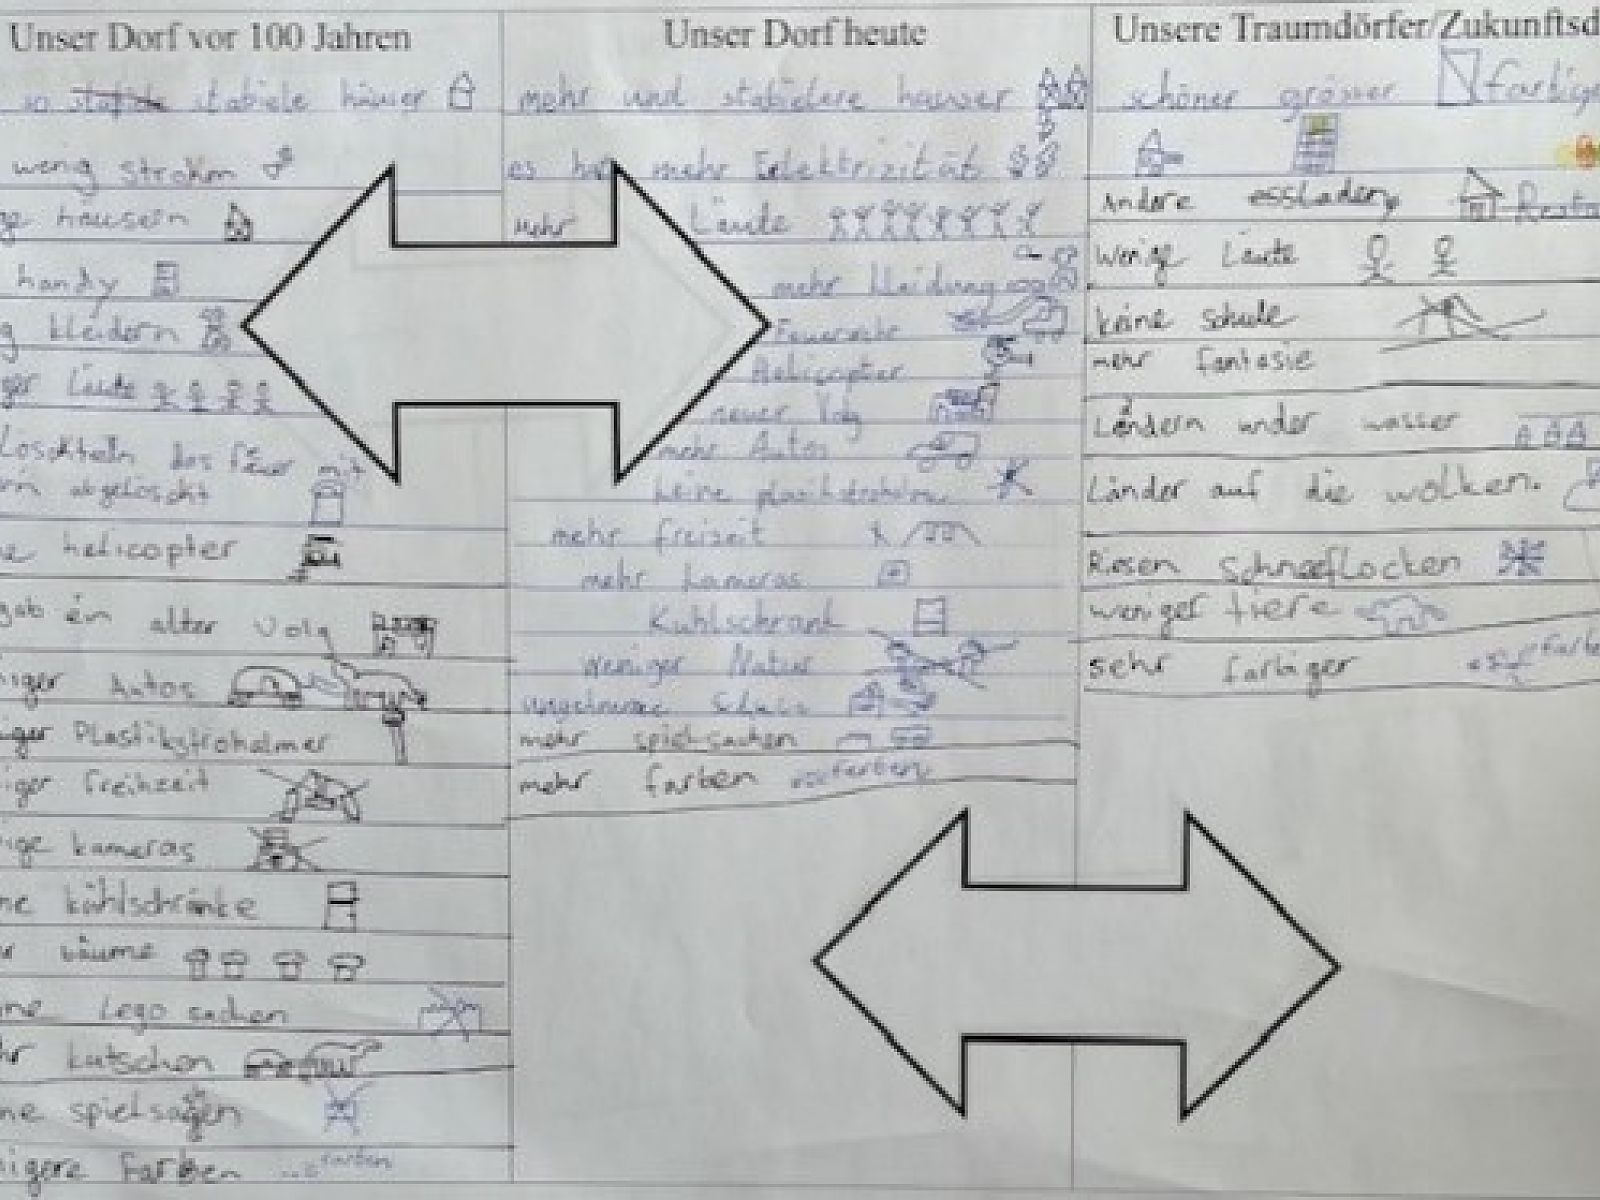 Unser Dorf vor 100 Jahren
so stabiele häuser
wenig stroken
ge häusern
handy
g kleidern
ger Läute
Löschteln das feuer mit
abgelöscht
ne helicopter
gab ein alter Volg
niger Autos
iger Plastikstrohalmer
iger freihzeit
nige kameras
ne kühlschränke
r bäume
ine Lego sachen
hr kutschen
ne spielsagen
nigere Farben farben
Unser Dorf heute
mehr und stabielere hauser
es hat mehr Eelektrizität
Mehr Läute
mehr kleidung
Feuerwehr
Helicopter
neuer Volg
mehr Autos
keine plastikstrohalm
mehr freizeit
mehr kameras
Kuhlschrank
Weniger Natur
Schule
mehr spielsachen
mehr farben farben
Unsere Traumdörfer/Zukunftsd
schöner grösser farbige
Andere essladen Resta
Wenige Läute
keine schule
mehr fantasie
Ländern under wasser
Länder auf die wolken.
Riesen schneeflocken
weniger tiere
sehr farbiger farbe